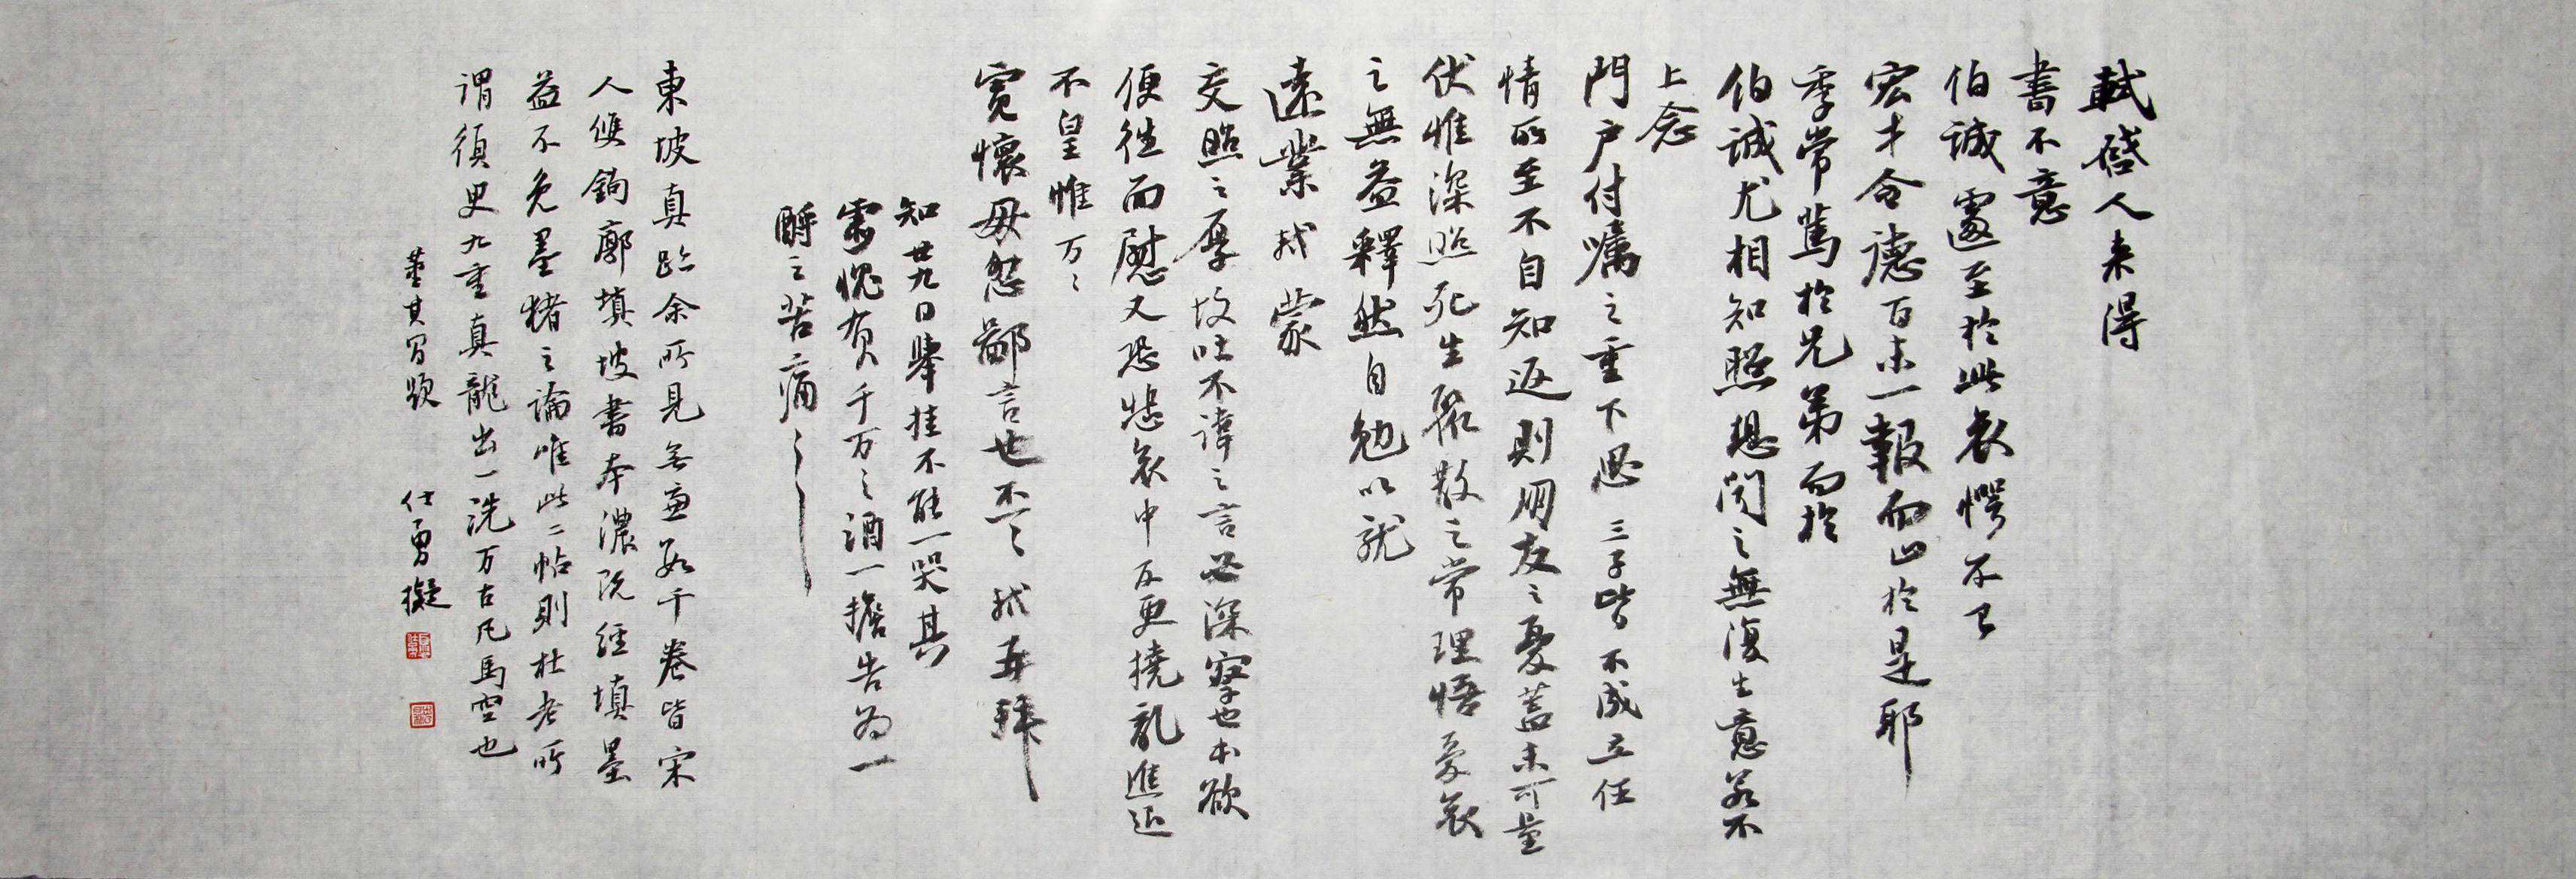 軾啓人来得
書不意
伯誠遽至於此哀愕不已
宏才令德百未一報而止於是耶
季常篤於兄弟而於
伯誠尤相知照想聞之無復生意若不
上念
門户付囑之重下思三子皆不成立任
情所至不自知返則朋友之憂蓋未可量
伏惟深照死生聚散之常理悟憂哀
之無益釋然自勉以就
遠業軾蒙
交照之厚故吐不諱之言必深察也本欲
便往面慰又恐悲哀中反更撓亂進退
不皇惟万〻
寬懷毋忽鄙言也不一〻軾再拜
知廿九日舉挂不能一哭其
靈愧負千万〻酒一擔告為一
酹之苦痛〻
東坡真跡余所見無慮數十卷皆宋
人雙鉤廓填坡書本濃既經填墨
益不免墨猪之論唯此二帖則杜老所
謂須臾九重真龍出一洗万古凡馬空也
董其昌題
仕勇擬